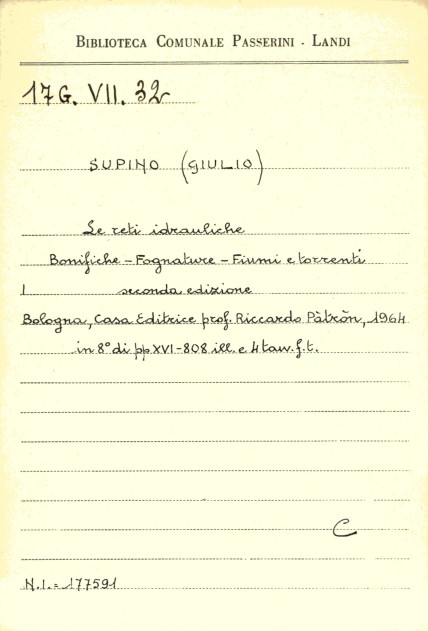 BIBLIOTECA COMUNALE PASSERINI - LANDI
17G. VII. 32
SUPINO (GIULIO)
Le reti idrauliche
Bonifiche - Fognature - Fiumi e torrenti
I seconda edizione
Bologna, Casa Editrice prof. Riccardo Pàtròn, 1964
in 8° di pp XVI-808 ill. e 4 tav. f.t.
C
N.I. = 177591